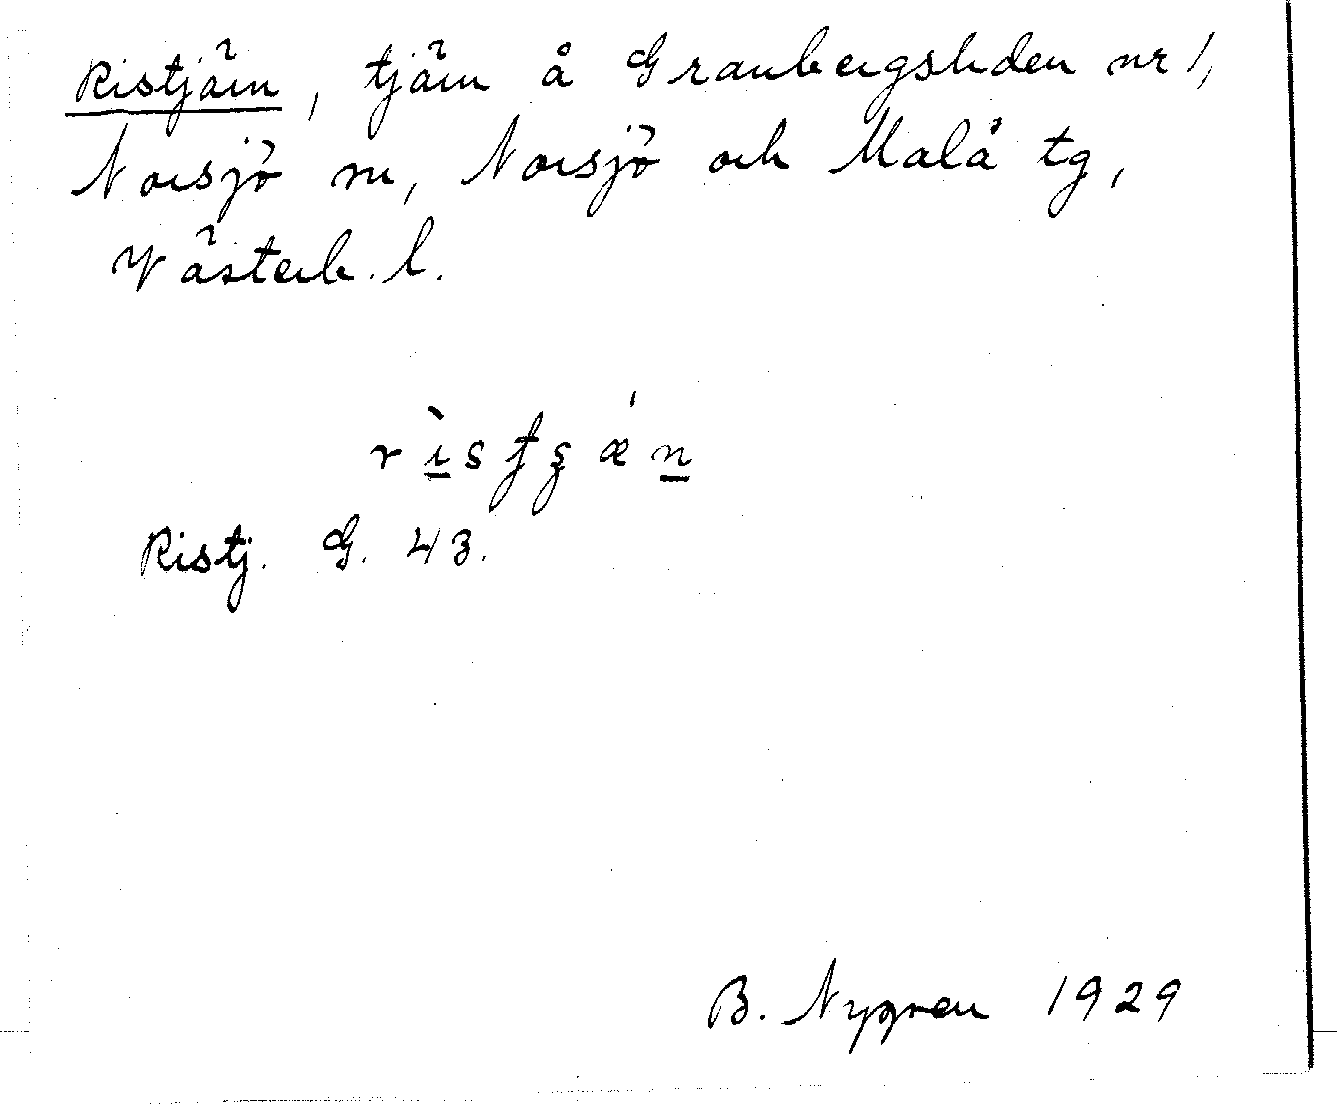 Ristjärn, tjärn å Granbergsliden nr 1,
Norsjö sn, Norsjö och Malå tg,
Västerb. l.
Ristj. G. 43.
B. Nygren 1929